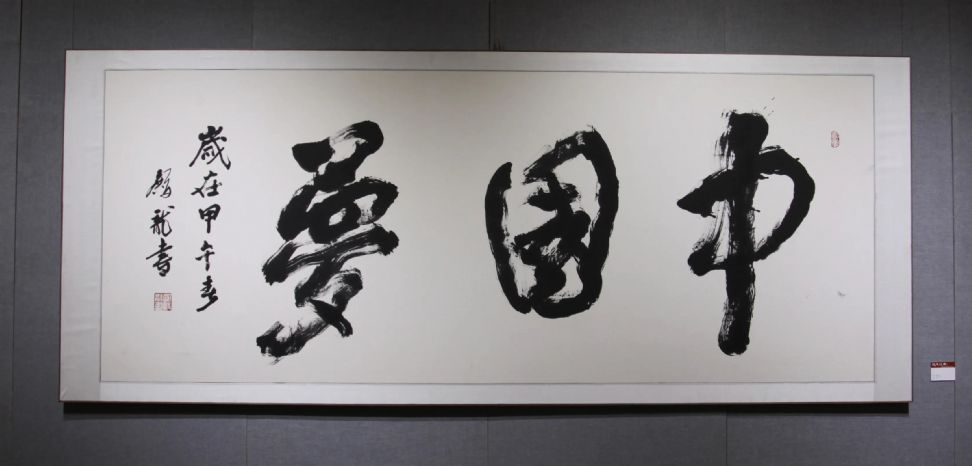 中國夢
歲在甲午春
龍書